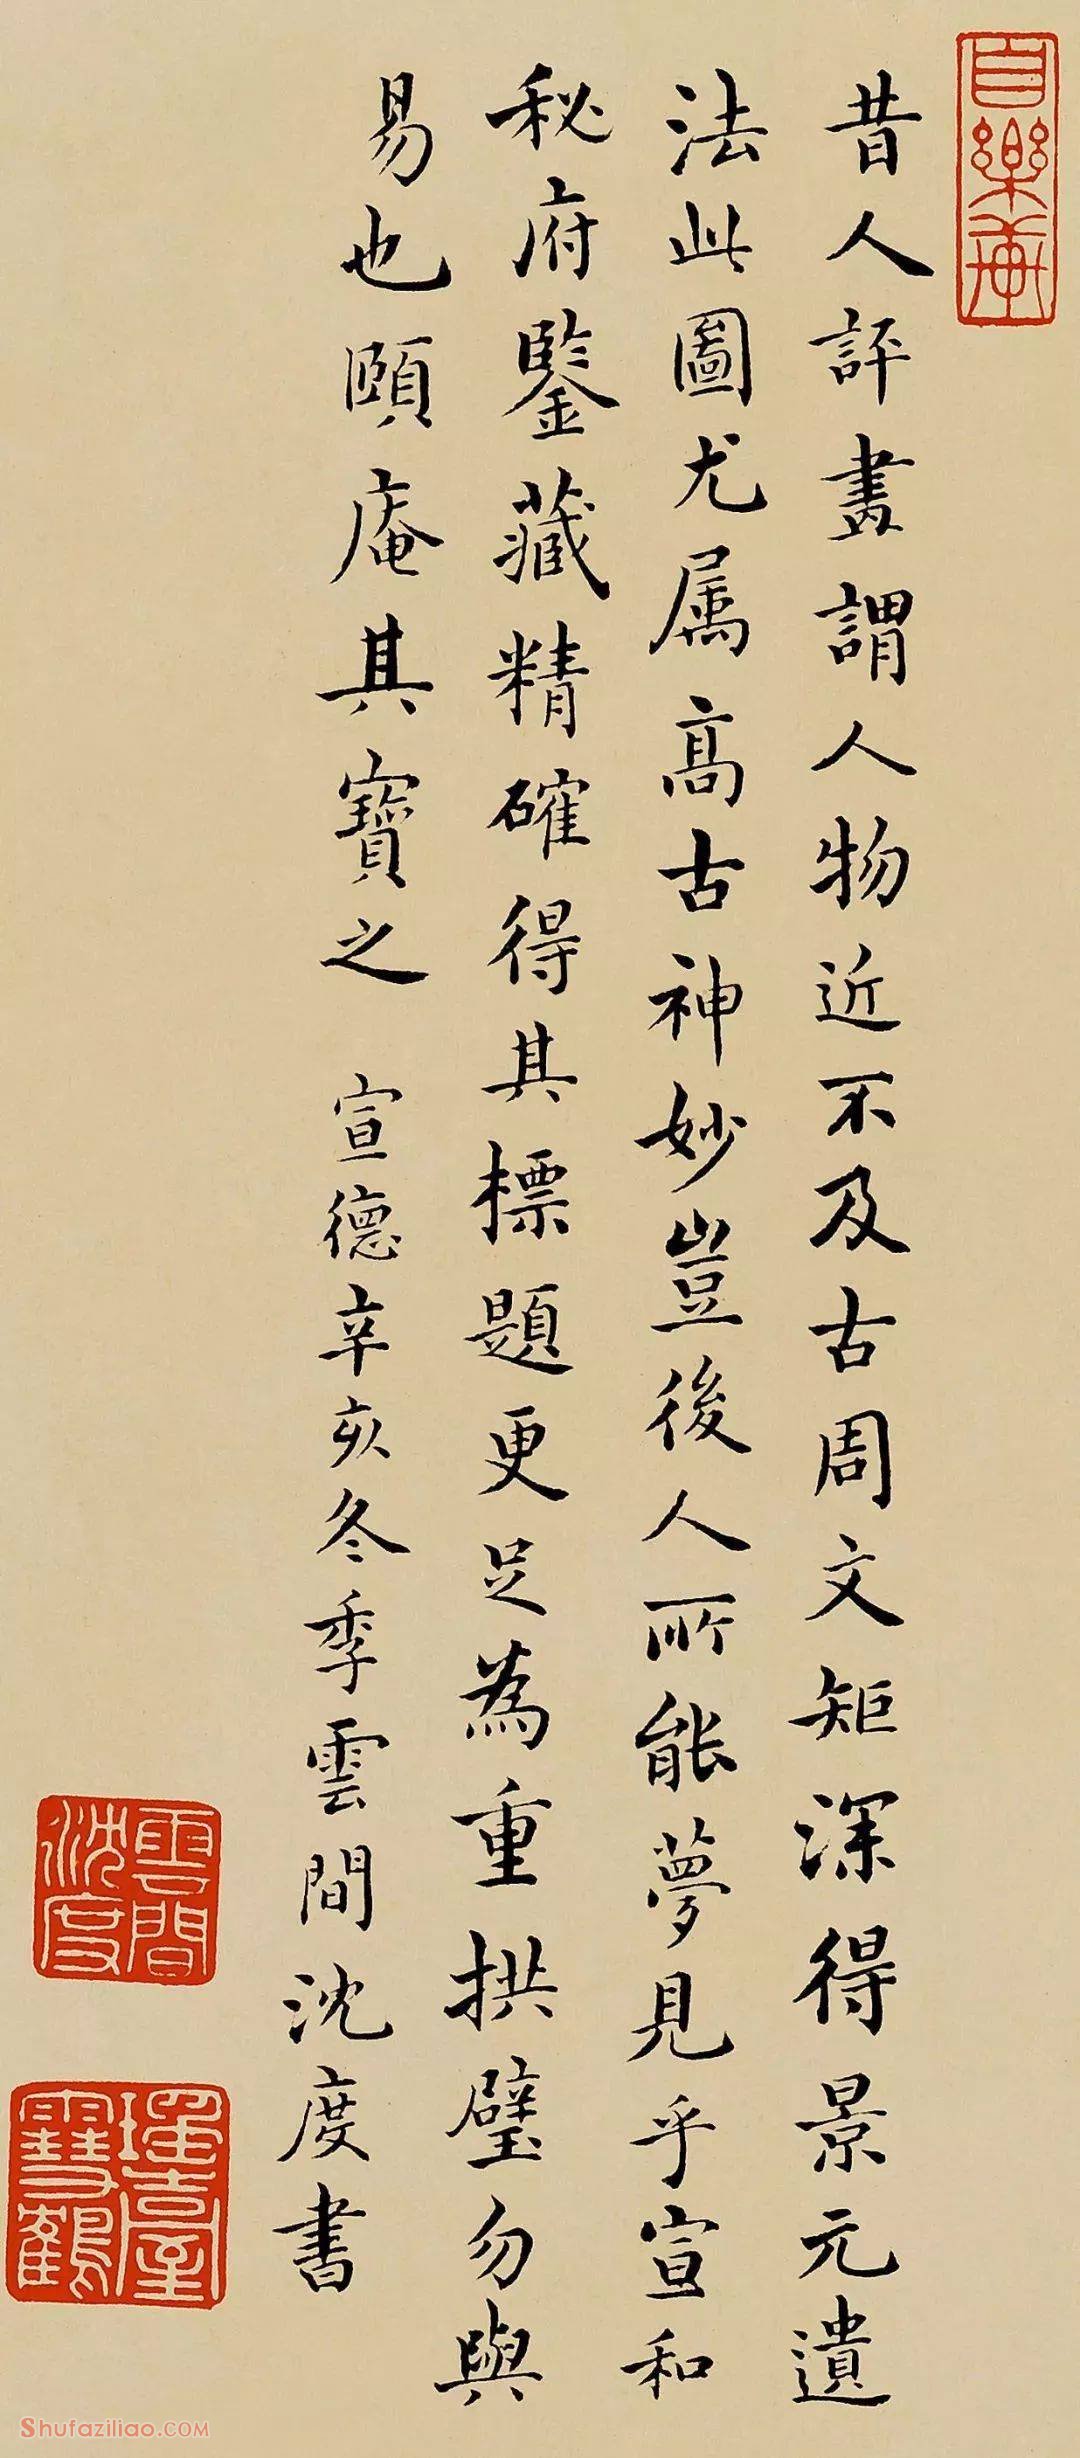 自樂
昔人評畫謂人物近不及古周文矩深得景元遺
法此圖尤属高古神妙豈後人所能夢見乎宣和
秘府鑒藏精確得其標題更足為重拱璧勿與
易也頤庵其寶之 宣德辛亥冬季雲間沈度書
雲間沈度
瑤臺雪鶴
Shufaziliao.COM